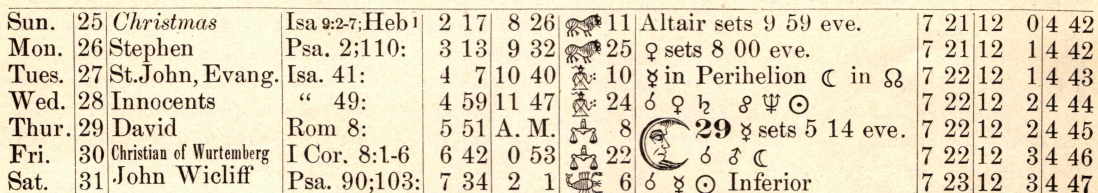 Sun. 25 Christmas Isa 9:2-7; Heb 1 2 17 8 26 11 Altair sets 9 59 eve. 7 21 12 0 4 42
Mon. 26 Stephen Psa. 2;110: 3 13 9 32 25 ♀ sets 8 00 eve. 7 21 12 1 4 42
Tues. 27 St. John, Evang. Isa. 41: 4 7 10 40 10 ☿ in Perihelion ☾ in ☊ 7 22 12 1 4 43
Wed. 28 Innocents “ 49: 4 59 11 47 24 ☌ ♀ ♄ ☍ ♆ ☉ 7 22 12 2 4 44
Thur. 29 David Rom 8: 5 51 A. M. 8 29 ☿ sets 5 14 eve. 7 22 12 2 4 45
Fri. 30 Christian of Wurtemberg I Cor. 8:1-6 6 42 0 53 22 ☌ ♂ ☾ 7 22 12 3 4 46
Sat. 31 John Wicliff Psa. 90;103: 7 34 2 1 6 ☌ ☿ ☉ Inferior 7 23 12 3 4 47